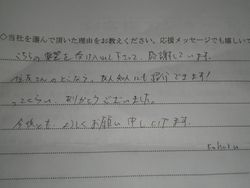 ○当社を選んで頂いた理由をお教えください。応援メッセージでも嬉しいで
こちらの要望を受け入れて下さって、感謝しています。
さんのこどなら、友人知人にも紹介できます!
ありがとうございました。
今後とも、よろしくお願い申し上げます。